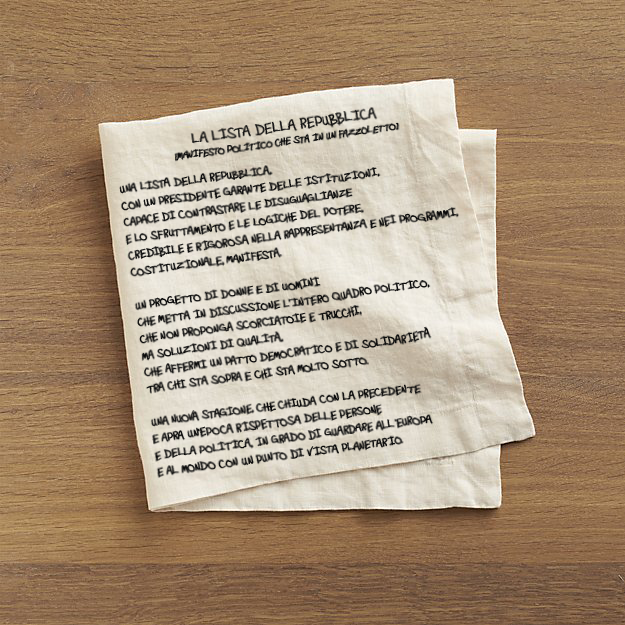 LA LISTA DELLA REPUBBLICA
(MANIFESTO POLITICO CHE STA IN UN FAZZOLETTO)
UNA LISTA DELLA REPUBBLICA,
CON UN PRESIDENTE GARANTE DELLE ISTITUZIONI,
CAPACE DI CONTRASTARE LE DISUGUAGLIANZE
E LO SFRUTTAMENTO E LE LOGICHE DEL POTERE,
CREDIBILE E RIGOROSA NELLA RAPPRESENTANZA E NEI PROGRAMMI,
COSTITUZIONALE, MANIFESTA.
UN PROGETTO DI DONNE E DI UOMINI
CHE METTA IN DISCUSSIONE L'INTERO QUADRO POLITICO,
CHE NON PROPONGA SCORCIATOIE E TRUCCHI,
MA SOLUZIONI DI QUALITÀ,
CHE AFFERMI UN PATTO DEMOCRATICO E DI SOLIDARIETÀ
TRA CHI STA SOPRA E CHI STA MOLTO SOTTO.
UNA NUOVA STAGIONE, CHE CHIUDA CON LA PRECEDENTE
E APRA UN'EPOCA RISPETTOSA DELLE PERSONE
E DELLA POLITICA, IN GRADO DI GUARDARE ALL'EUROPA
E AL MONDO CON UN PUNTO DI VISTA PLANETARIO.